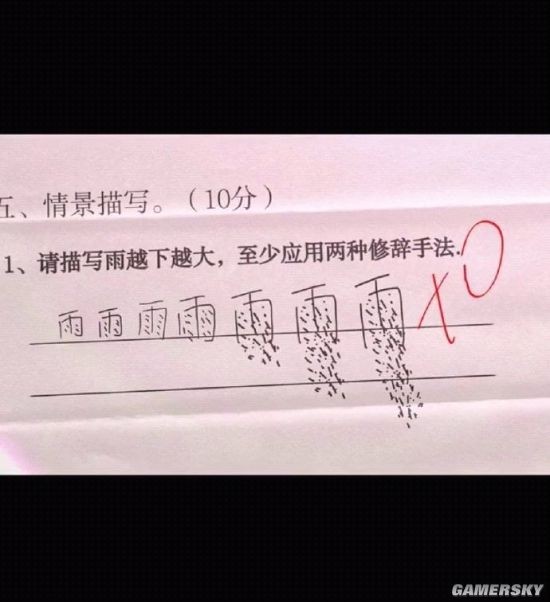 五、情景描写。（10分）
1、请描写雨越下越大，至少应用两种修辞手法.
雨雨雨雨雨雨雨
×0
GAMERSKY